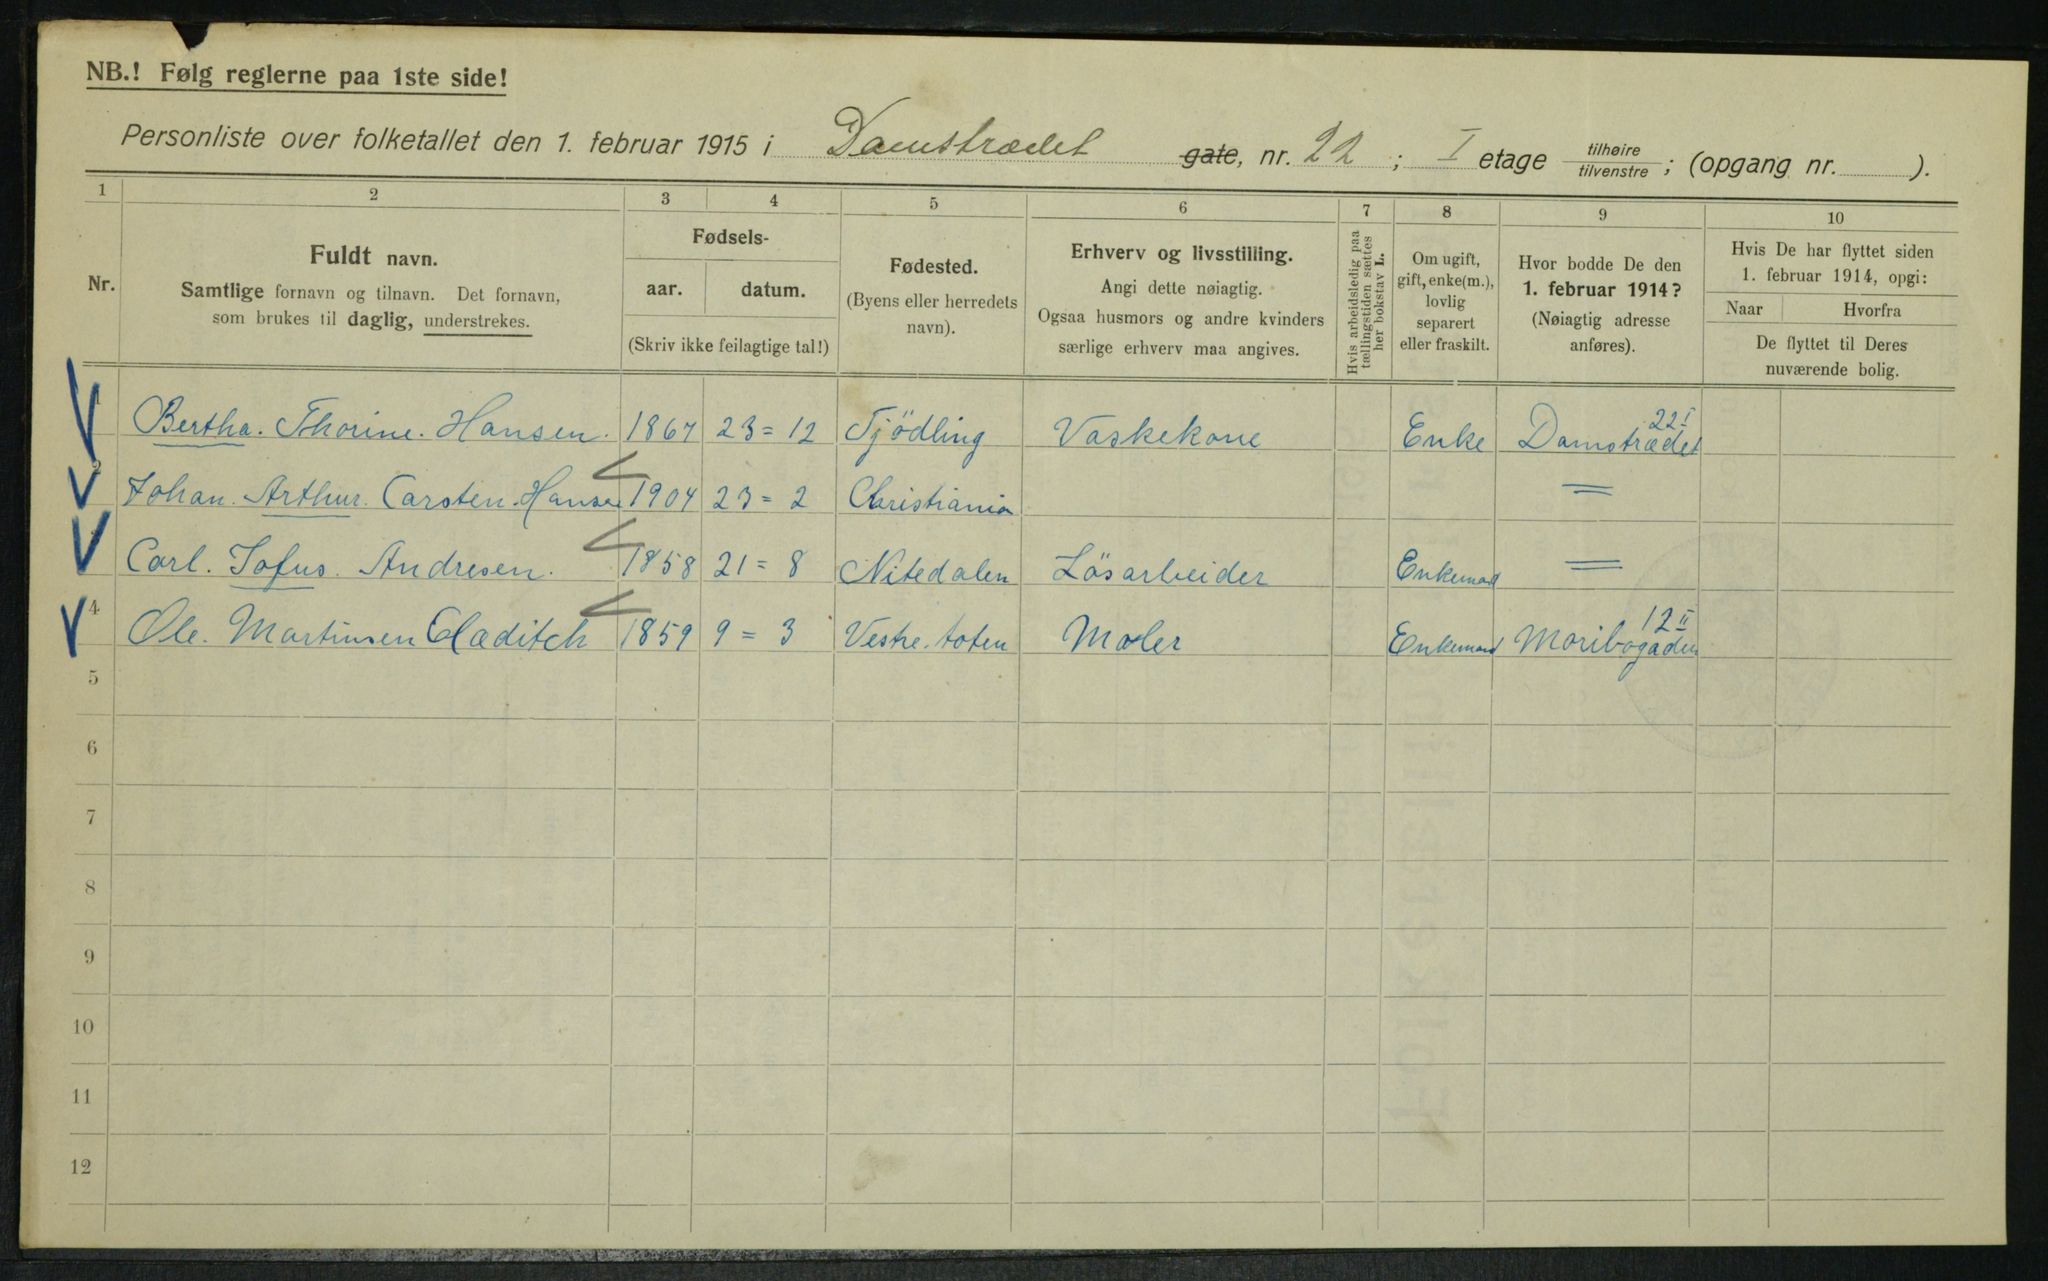 NB.! Følg reglerne paa 1ste side!
Personliste over folketallet den 1. februar 1915 i Damstrædet gate, nr. 22; I etage tilhøire tilvenstre; (opgang nr. ).
1 2 3 4 5 6 7 8 9 10
Nr.
Fuldt navn.
Samtlige fornavn og tilnavn. Det fornavn,
som brukes til daglig, understrekes.
Fødsels-
aar. datum.
(Skriv ikke feilagtige tal!)
Fødested.
(Byens eller herredets
navn).
Erhverv og livsstilling.
Angi dette nøiagtig.
Ogsaa husmors og andre kvinders
særlige erhverv maa angives.
Hvis arbeidsledig paa
tællingstiden sættes
her bokstav L.
Om ugift,
gift, enke(m.),
lovlig
separert
eller fraskilt.
Hvor bodde De den
1. februar 1914?
(Nøiagtig adresse
anføres).
Hvis De har flyttet siden
1. februar 1914, opgi:
Naar Hvorfra
De flyttet til Deres
nuværende bolig.
1 Bertha. Thorine. Hansen. 1867 23=12 Tjödling Vaskekone Enke Damstrædet 22 I
2 Johan. Arthur. Carsten. Hansen 1904 23=2 Christiania =
Carl. Sofus. Andresen. 1858 21=8 Nitedalen Lösarbeider Enkemand =
4 Ole. Martinsen 1859 9=3 Vestre. toten Maler Enkemand Maribogaden 12 II
5
6
7
8
9
10
11
12